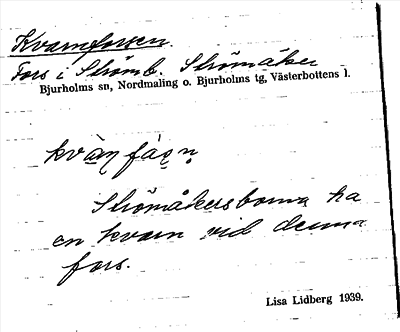 Kvarnforsen.
Fors i Strömb. Strömåker
Bjurholms sn, Nordmaling o. Bjurholms tg, Västerbottens l.
kvàn̩fáʂn̩
Strömåkersborna ha
en kvarn vid denna
fors.
Lisa Lidberg 1939.